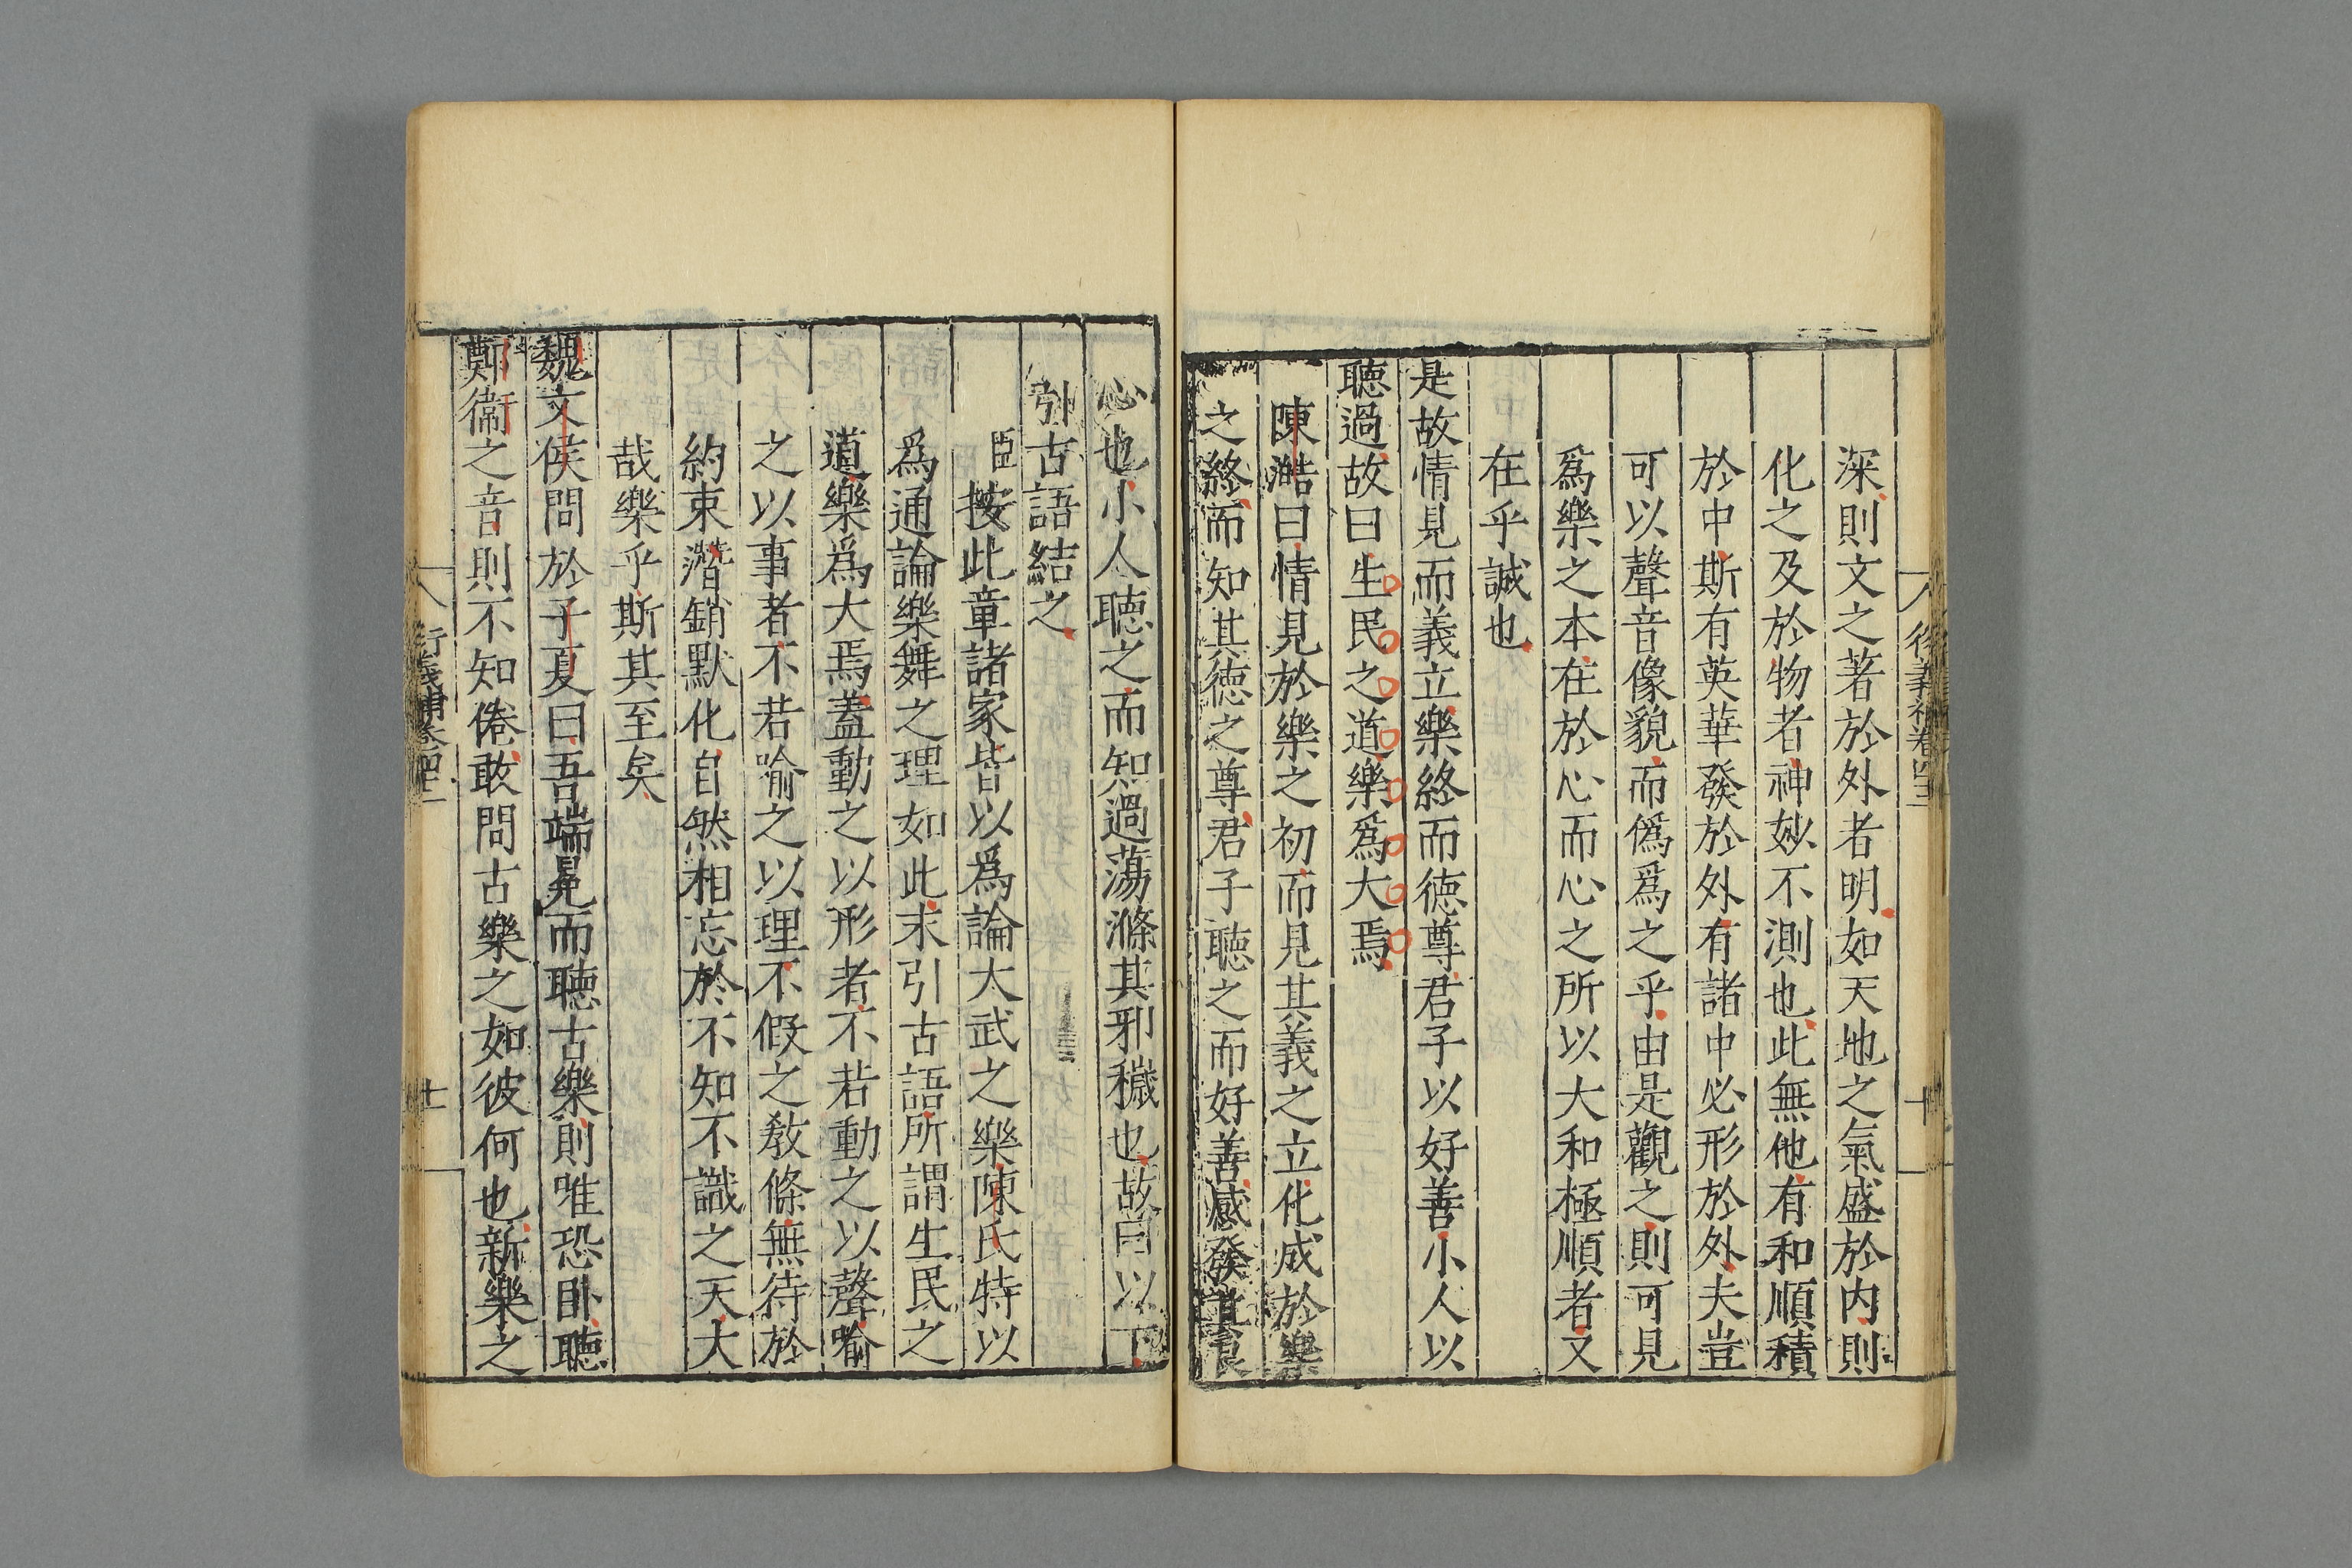 深則文之著於外者明如天地之氣盛於内則
化之及於物者神妙不測也此無他有和順積
於中斯有英華發於外有諸中必形於外夫豈
可以聲音像貌而僞爲之乎由是觀之則可見
爲樂之本在於心而心之所以大和極順者又
在乎誠也
是故情見而義立樂終而德尊君子以好善小人以
聽過故曰生民之道樂爲大焉
陳澔曰情見於樂之初而見其義之立化成於樂
之終而知其德之尊君子聽之而好善感發其良
心也小人聽之而知過蕩滌其邪穢也故曰以下
引古語結之
臣按此章諸家皆以爲論大武之樂陳氏特以
爲通論樂舞之理如此末引古語所謂生民之
道樂爲大焉蓋動之以形者不若動之以聲喻
之以事者不若喻之以理不假之教條無待於
約束潛銷默化自然相忘於不知不識之天大
哉樂乎斯其至矣
魏文侯問於子夏曰吾端冕而聽古樂則唯恐卧聽
鄭衞之音則不知倦敢問古樂之如彼何也新樂之
十一